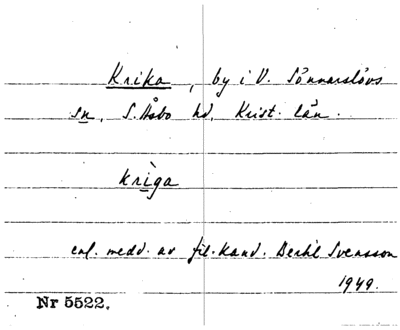 Krika, by i V. Sönnarslövs
sn, S. Åsbo hd, Krist. län.
krìga
enl. medd. av fil. kand. Bertil Svensson
1949.
Nr 5522.